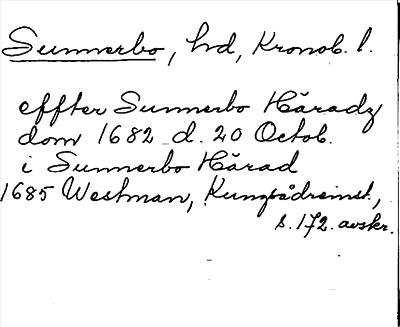 Sunnerbo, hd, Kronob. l.
effter Sunnerbo Häradz
dom 1682 d. 20 Octob.
i Sunnerbo Härad
1685 Westman,
s. 172. avskr.